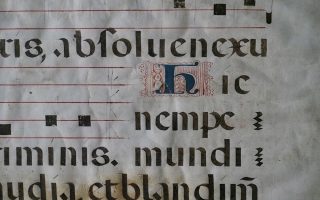 ris, absoluenexu
hic
nempe
riminis. mundi
audia, et blandim̄